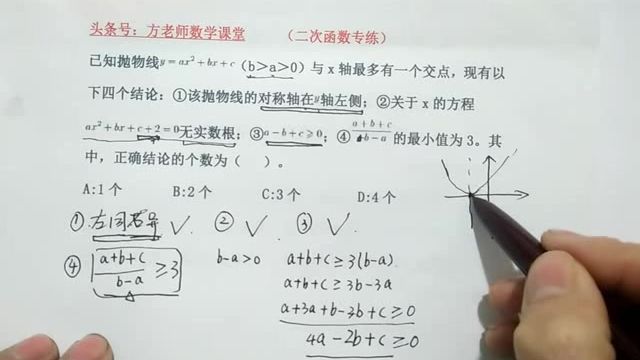 头条号：方老师数学课堂 （二次函数专练）
已知抛物线y=ax²+bx+c（b＞a＞0）与x轴最多有一个交点，现有以
下四个结论：①该抛物线的对称轴在y轴左侧；②关于x的方程
ax²+bx+c+2=0无实数根；③a-b+c≥0；④(a+b+c)/(b-a)的最小值为3。其
中，正确结论的个数为（ ）。
A:1个 B:2个 C:3个 D:4个
①左同右异 ✓ ② ✓ ③ ✓
④ (a+b+c)/(b-a) ≥3 b-a>0 a+b+c≥3(b-a)
a+b+c≥3b-3a
a+3a+b-3b+c≥0
4a-2b+c≥0